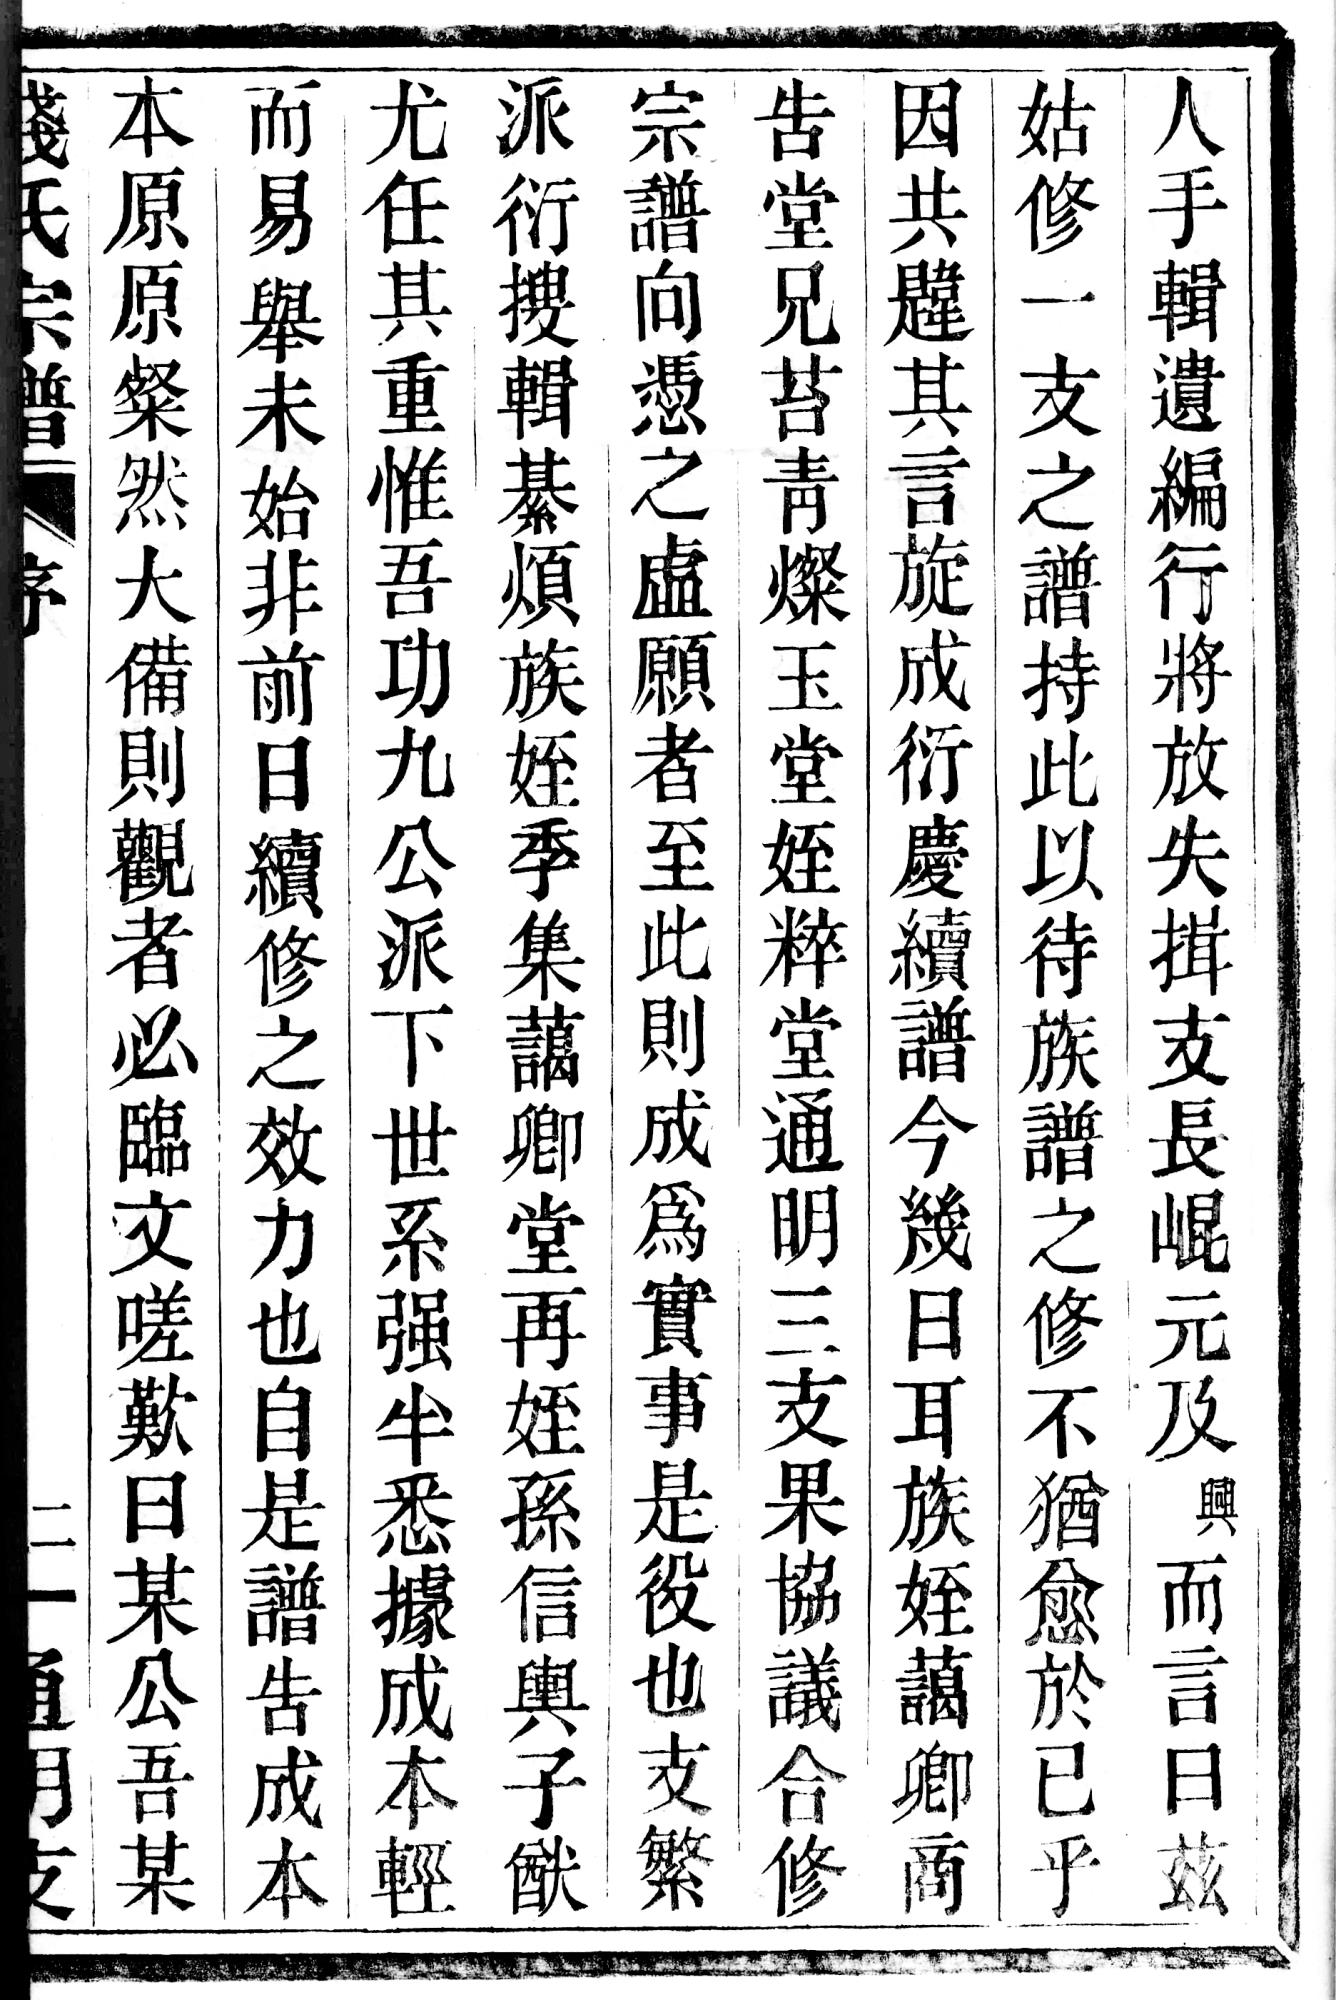 人手輯遺編行將放失揖支長崐元及興而言曰茲
姑修一支之譜持此以待族譜之修不猶愈於已乎
因共韙其言旋成衍慶續譜今幾日耳族姪藹卿商
告堂兄苔青燦玉堂姪粹堂通明三支果協議合修
宗譜向憑之虛願者至此則成爲實事是役也支繁
派衍搜輯綦煩族姪季集藹卿堂再姪孫信輿子猷
尤任其重惟吾功九公派下世系强半悉據成本輕
而易舉未始非前日續修之效力也自是譜告成本
本原原粲然大備則觀者必臨文嗟歎曰某公吾某
錢氏宗譜 序 二 通明支